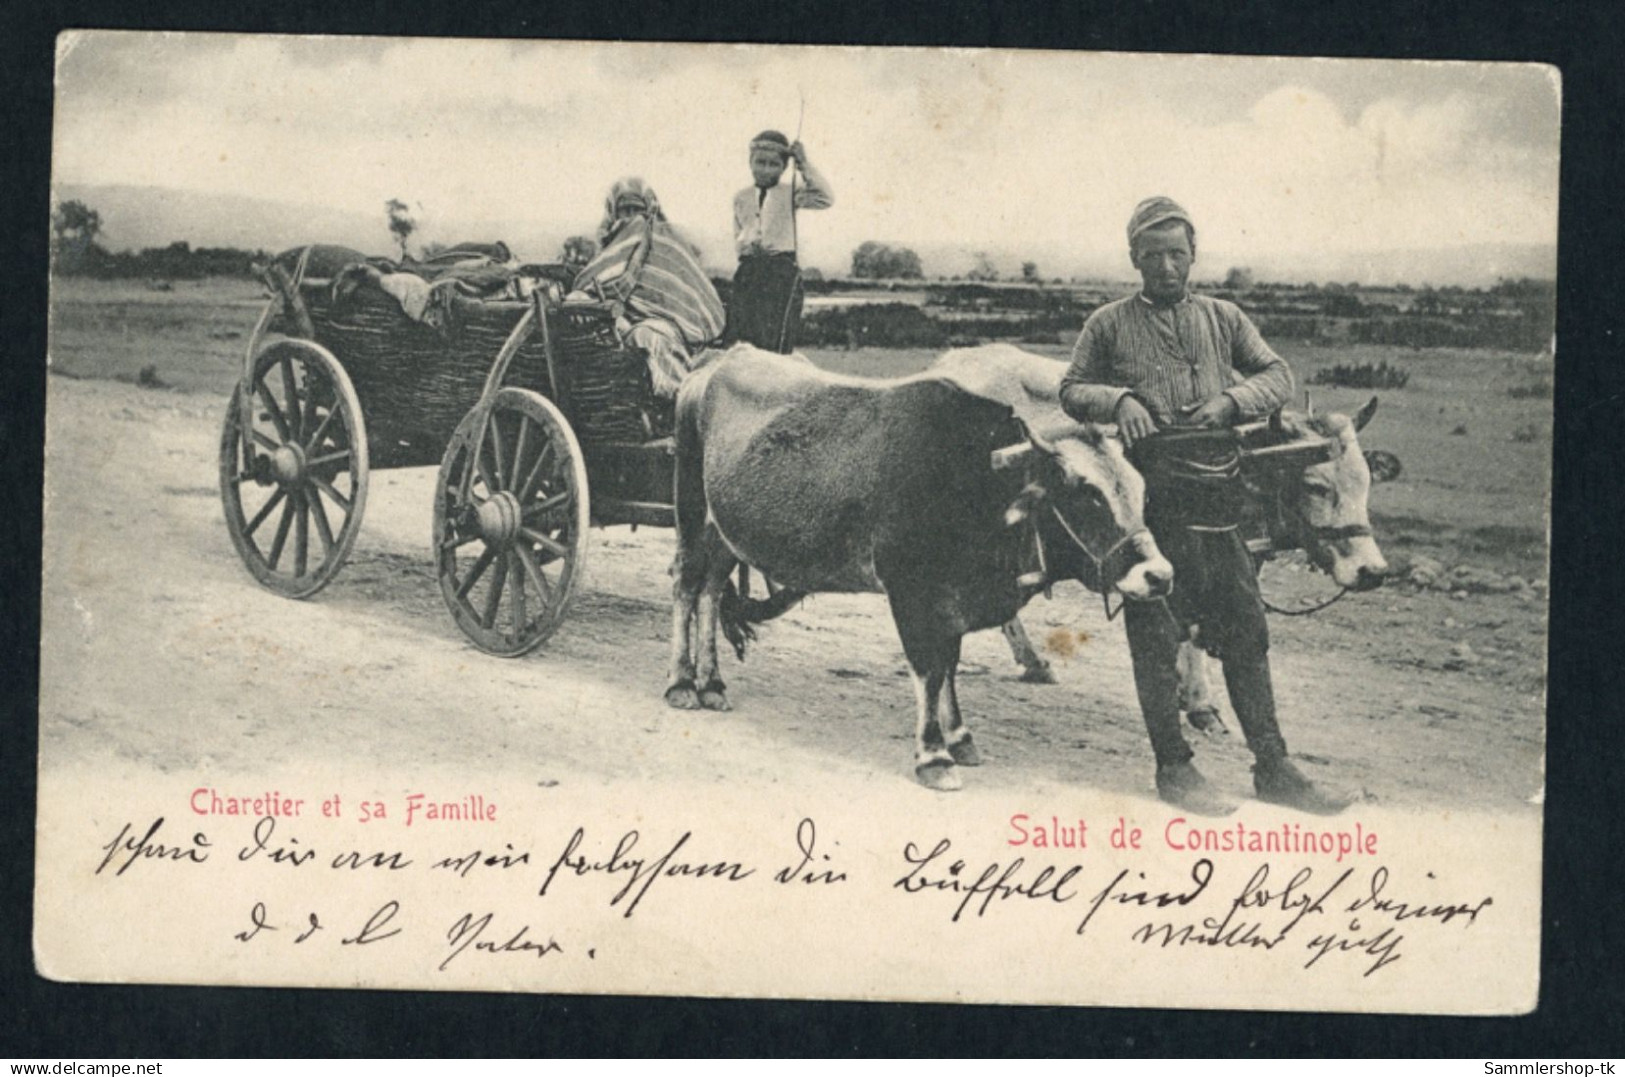 Charetier et sa Famille
Salut de Constantinople
schau dir an wie folgsam die Büffell sind folgt deiner
Mutter auch
d d l Vater.
delcampe.net
Sammlershop-tk